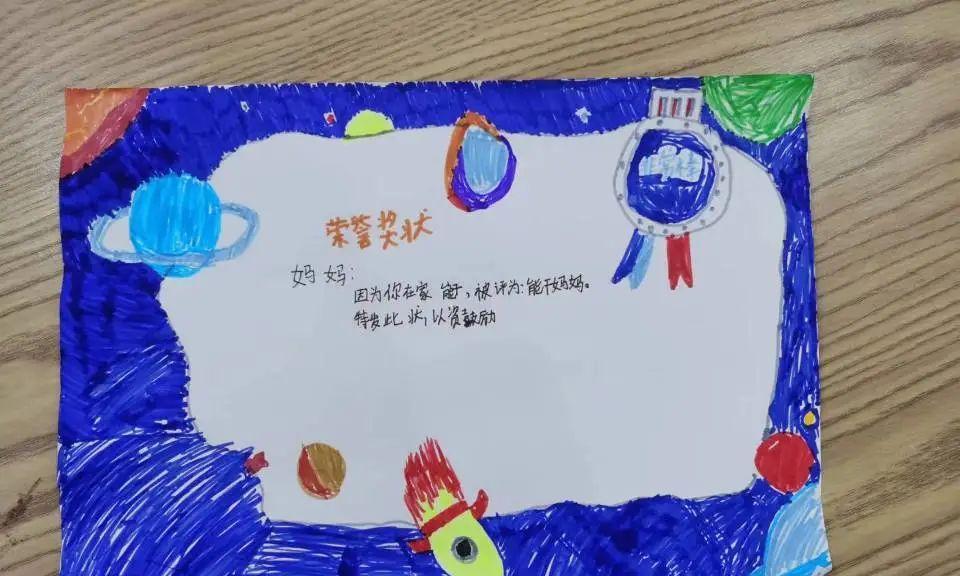 非常棒
荣誉奖状
妈妈:
因为你在家能干,被评为:能干妈妈。
特发此状,以资鼓励